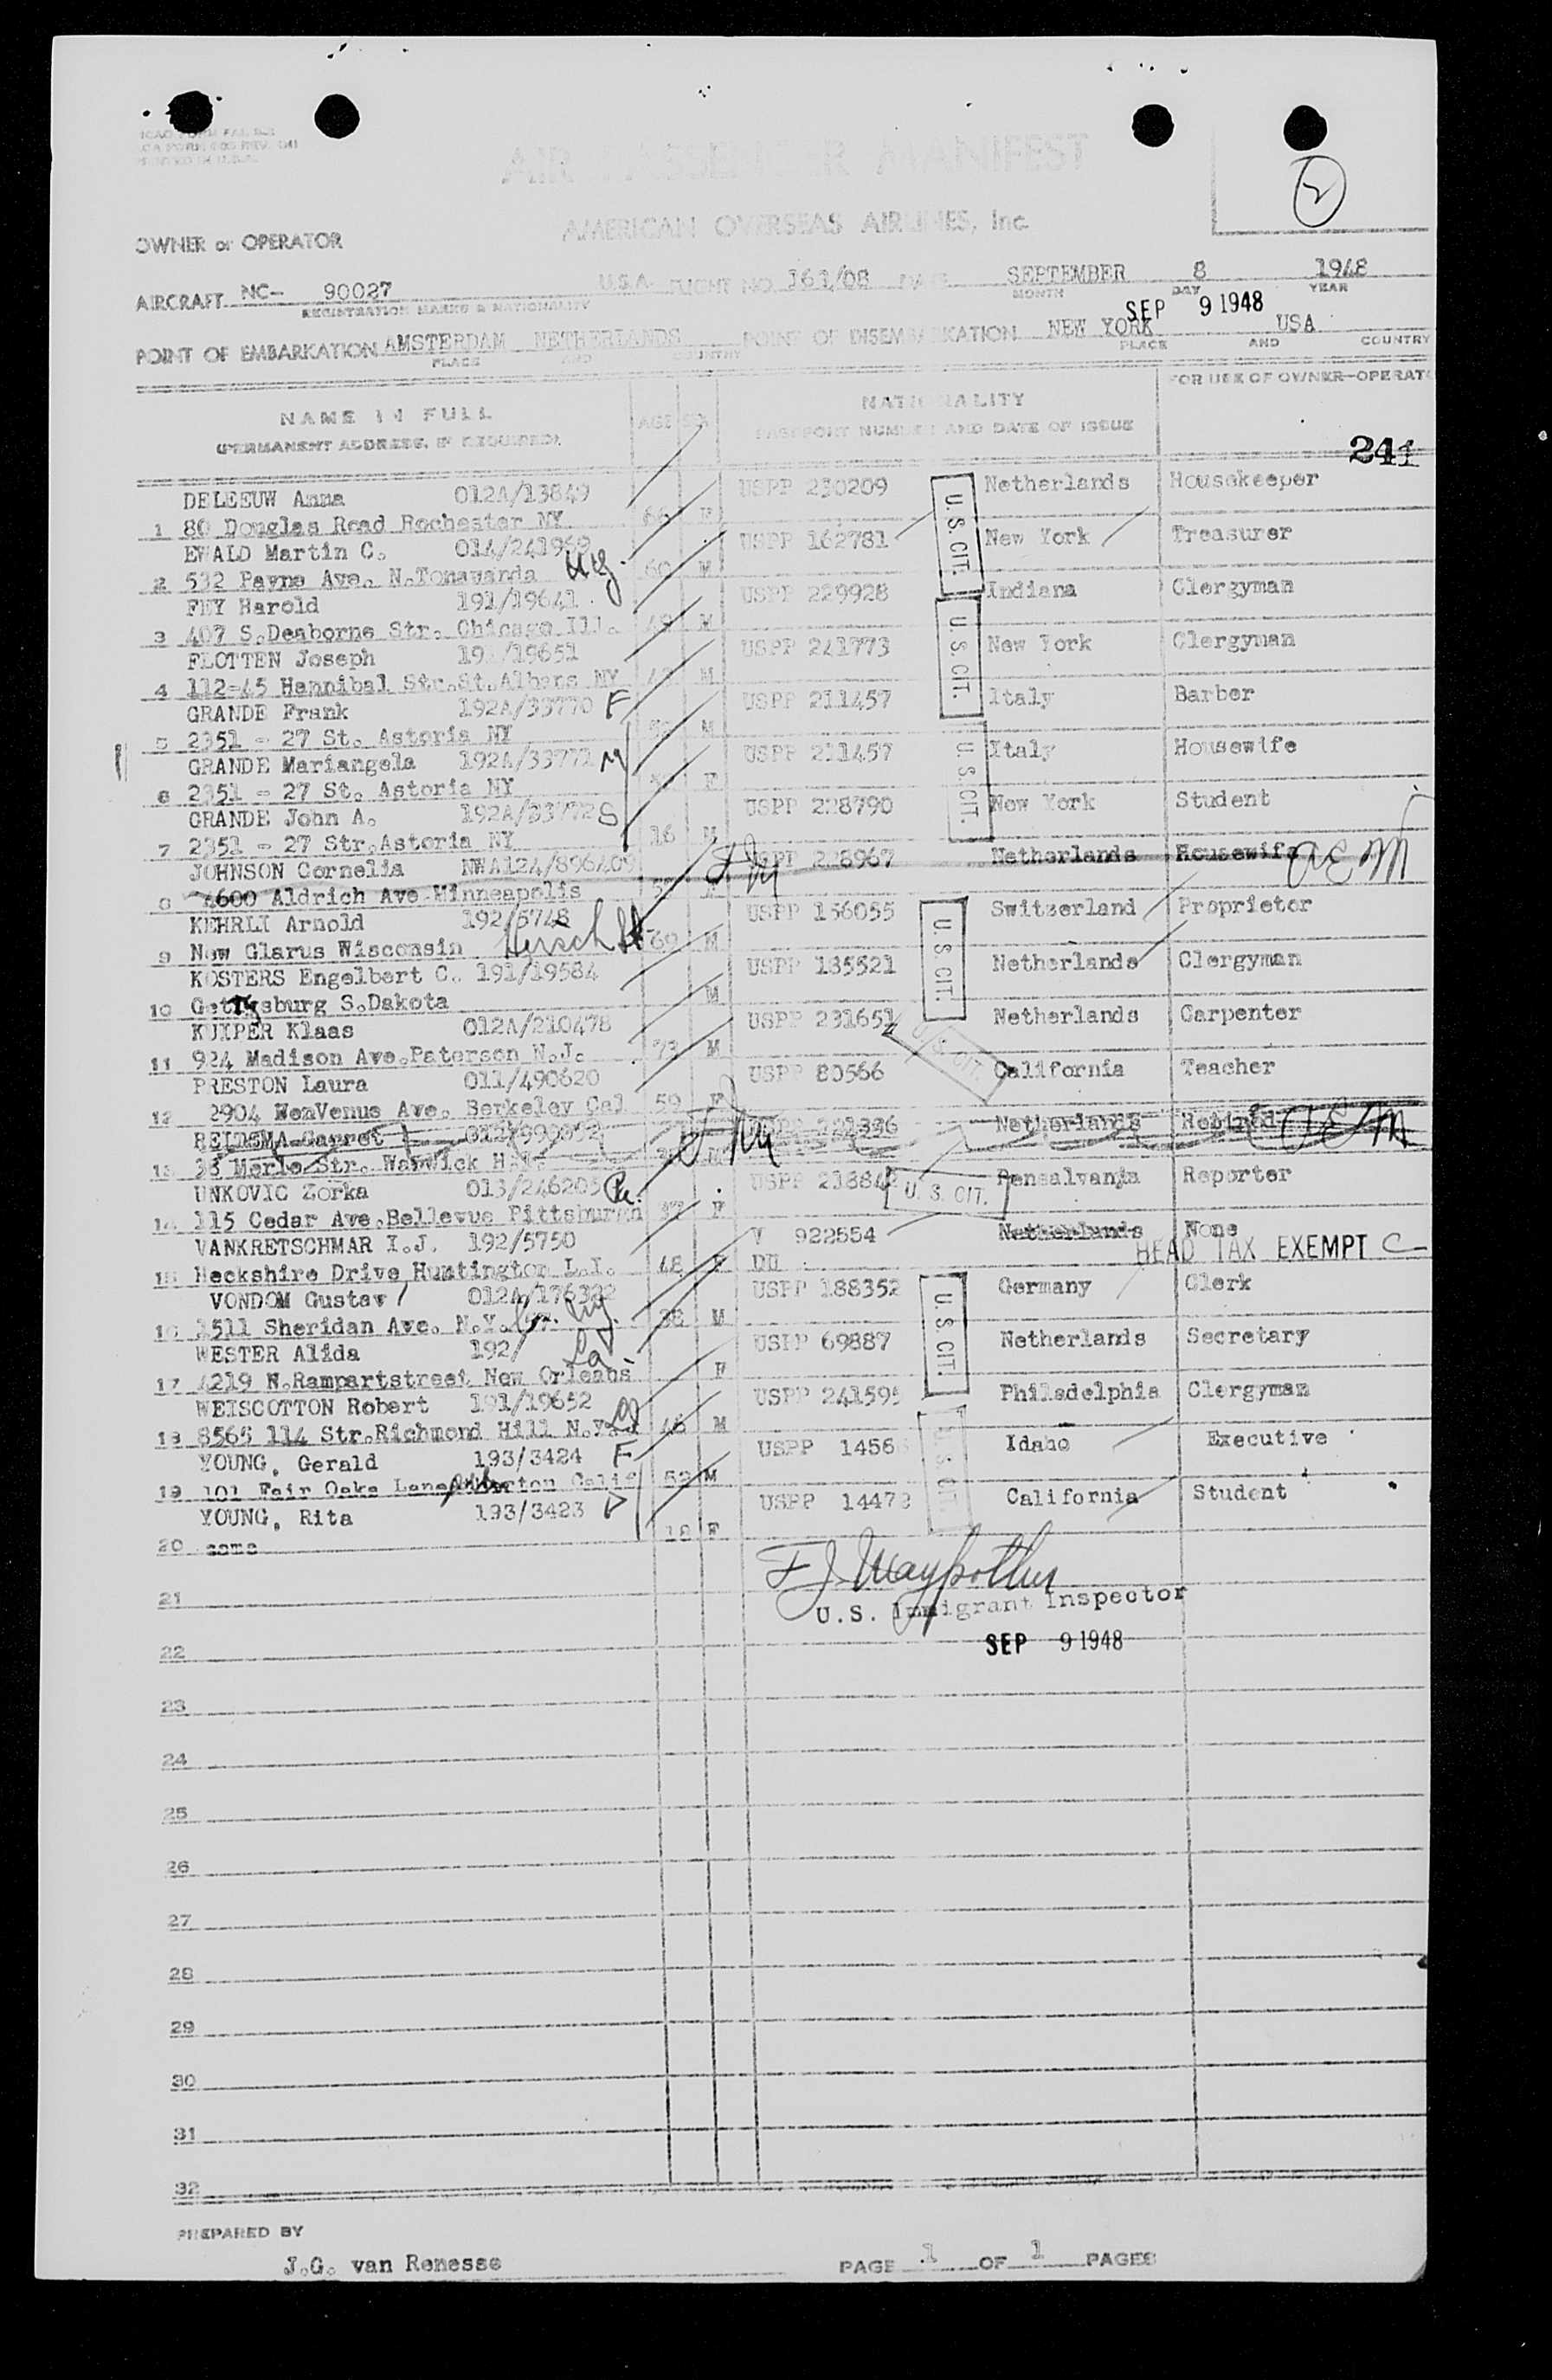 ICAO FORM FAL
PRINTED IN U.S.A.
AIR PASSENGER MANIFEST
2
AMERICAN OVERSEAS AIRLINES, Inc.
OWNER or OPERATOR
AIRCRAFT NC- 90027 U.S.A. FLIGHT NO. 161/08 DATE SEPTEMBER 8 1948
REGISTRATION MARKS & NATIONALITY MONTH DAY YEAR
SEP 9 1948
POINT OF EMBARKATION AMSTERDAM NETHERLANDS POINT OF DISEMBARKATION NEW YORK USA
PLACE AND COUNTRY PLACE AND COUNTRY
NAME IN FULL AGE SEX NATIONALITY FOR USE OF OWNER-OPERATO
(PERMANENT ADDRESS, IF REQUIRED) PASSPORT NUMBER AND DATE OF ISSUE
241
DELEEUW Anna 012A/13849 USPP 230209 Netherlands Housekeeper
1 80 Douglas Road Rochester NY 66 F
EWALD Martin C. 014/241969 USPP 162781 U.S. CIT. New York Treasurer
2 532 Payne Ave. N.Tonawanda NY. 60 M
FEY Harold 191/19641 USPP 229928 Indiana Clergyman
3 407 S.Deaborne Str. Chicago Ill. 49 M
FLOTTEN Joseph 191/19651 USPP 241773 U.S. CIT. New York Clergyman
4 112-45 Hannibal Str.St.Albans NY M
GRANDE Frank 192A/33770 F USPP 211457 Italy Barber
5 2351 - 27 St. Astoria NY M
GRANDE Mariangela 192A/33771 M USPP 211457 U.S. CIT. Italy Housewife
6 2351 - 27 St. Astoria NY F
GRANDE John A. 192A/33772 S USPP 228790 New York Student
7 2351 - 27 Str.Astoria NY 16 M
JOHNSON Cornelia NWA124/896409 USPP 228967 Netherlands Housewife
8 4600 Aldrich Ave Minneapolis F
KEHRLI Arnold 192/5748 USPP 156055 U.S. CIT. Switzerland Proprietor
9 New Glarus Wisconsin 69 M
KOSTERS Engelbert C. 191/19584 USPP 185521 Netherlands Clergyman
10 Gettysburg S.Dakota M
KUIPER Klaas 012A/210478 USPP 231651 U.S. CIT. Netherlands Carpenter
11 924 Madison Ave.Paterson N.J. 73 M
PRESTON Laura 011/490620 USPP 80566 California Teacher
12 2904 Ave. Berkeley Cal 59 F
REIDSMA Garret Netherlands Retired
13 Merle Str. Warwick M
UNKOVIC Zorka 013/246205 Pa. USPP 218842 U.S. CIT. Pensalvania Reporter
14 115 Cedar Ave.Bellevue Pittsburgh 37 F
VANKRETSCHMAR I.J. 192/5750 V 922554 Netherlands None
HEAD TAX EXEMPT C
15 Heckshire Drive Huntington L.I. 48 F
VONDOM Gustav 012A/176322 USPP 188352 U.S. CIT. Germany Clerk
16 1511 Sheridan Ave. N.Y. 38 M
WESTER Alida 192/ USPP 69887 Netherlands Secretary
17 4219 N.Rampartstreet New Orleans La F
WEISCOTTON Robert 191/19652 USPP 241595 Philadelphia Clergyman
18 8565 114 Str.Richmond Hill N.Y. 46 M
YOUNG, Gerald 193/3424 F USPP 1456 U.S. CIT. Idaho Executive
19 101 Fair Oaks Lane Atherton Calif 52 M
YOUNG, Rita 193/3423 D USPP 14473 California Student
20 same 18 F
21
U.S. Immigrant Inspector
22 SEP 9 1948
23
24
25
26
27
28
29
30
31
32
PREPARED BY
J.G. van Renesse PAGE 1 OF 1 PAGES